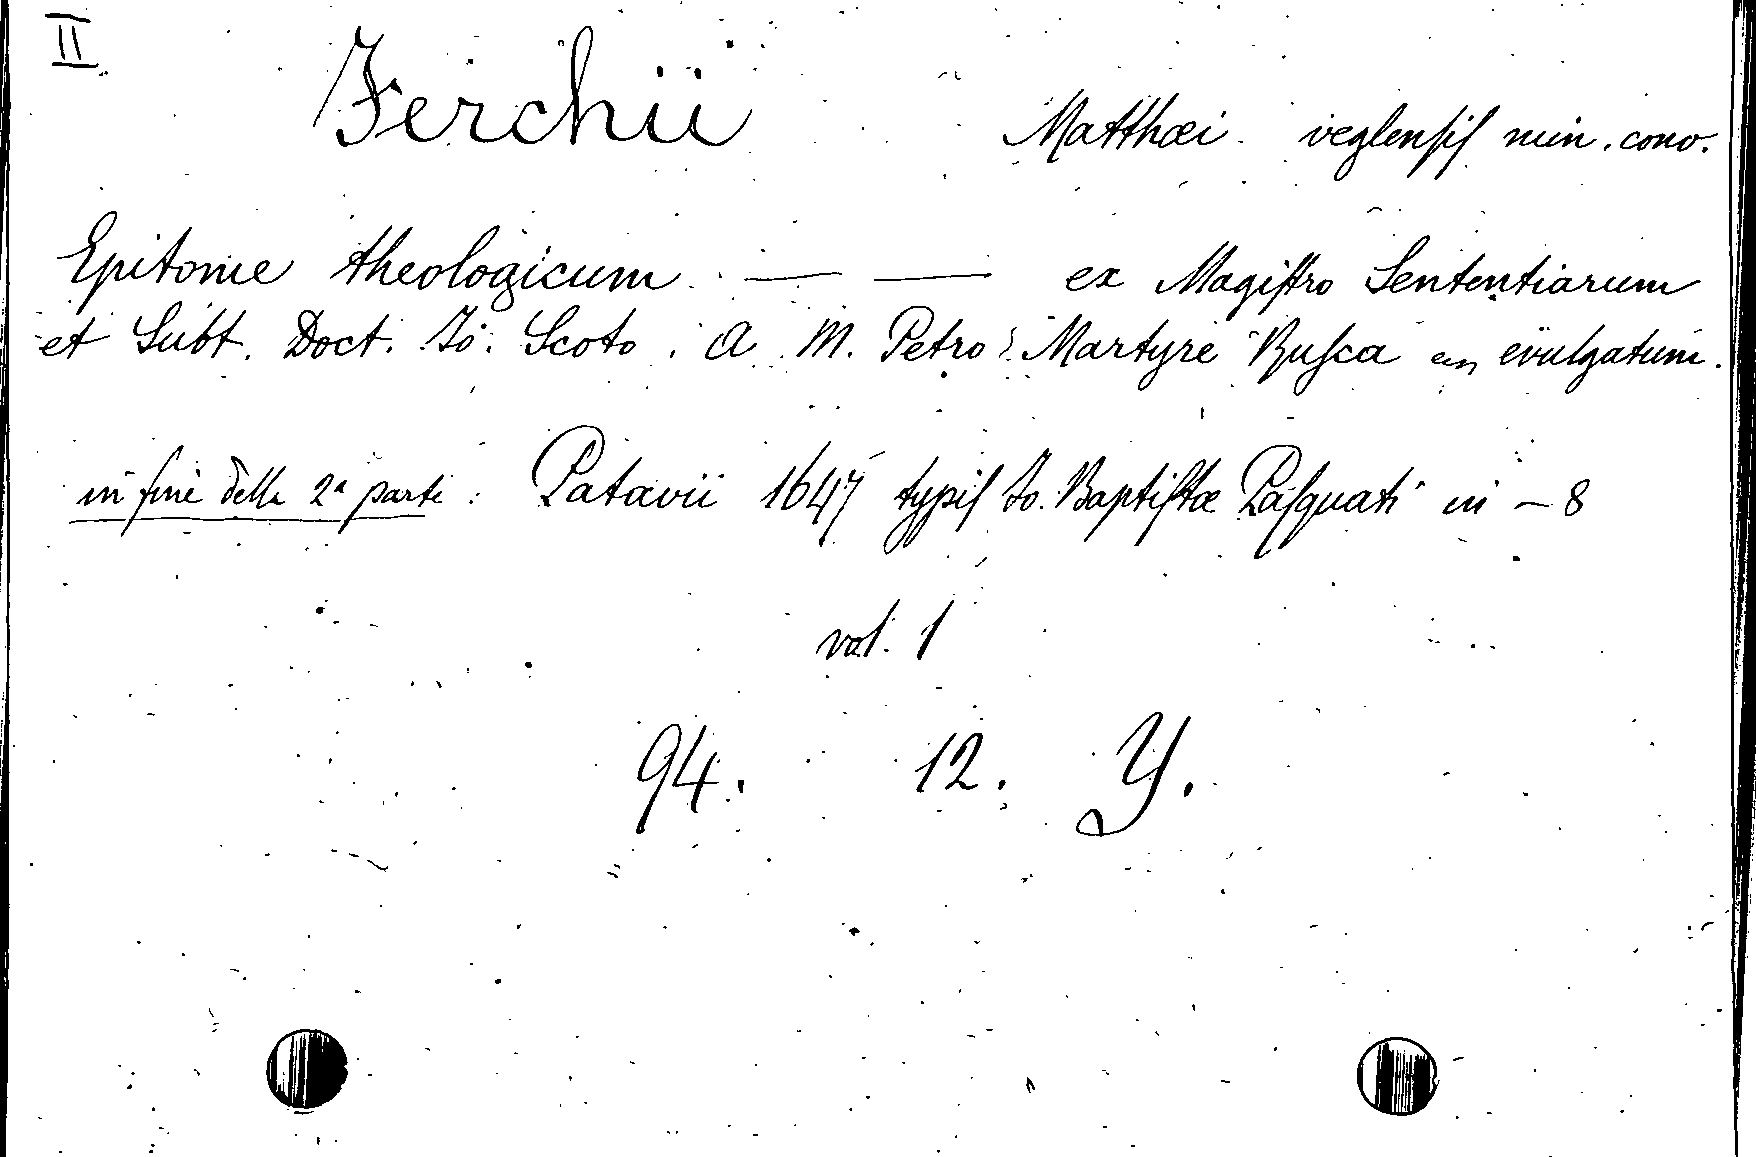 II
Ferchii Matthæi veglenſiſ min. conv.
Epitome theologicum — — ex Magiſtro Sententiarum
et Subt. Doct. Io. Scoto. A M. Petro Martyre Ruſca evulgatum.
in fine della 2ª parte: Patavii 1647 typiſ Io. Baptiſtæ Paſquati in - 8
vol. 1
94. 12. Y.